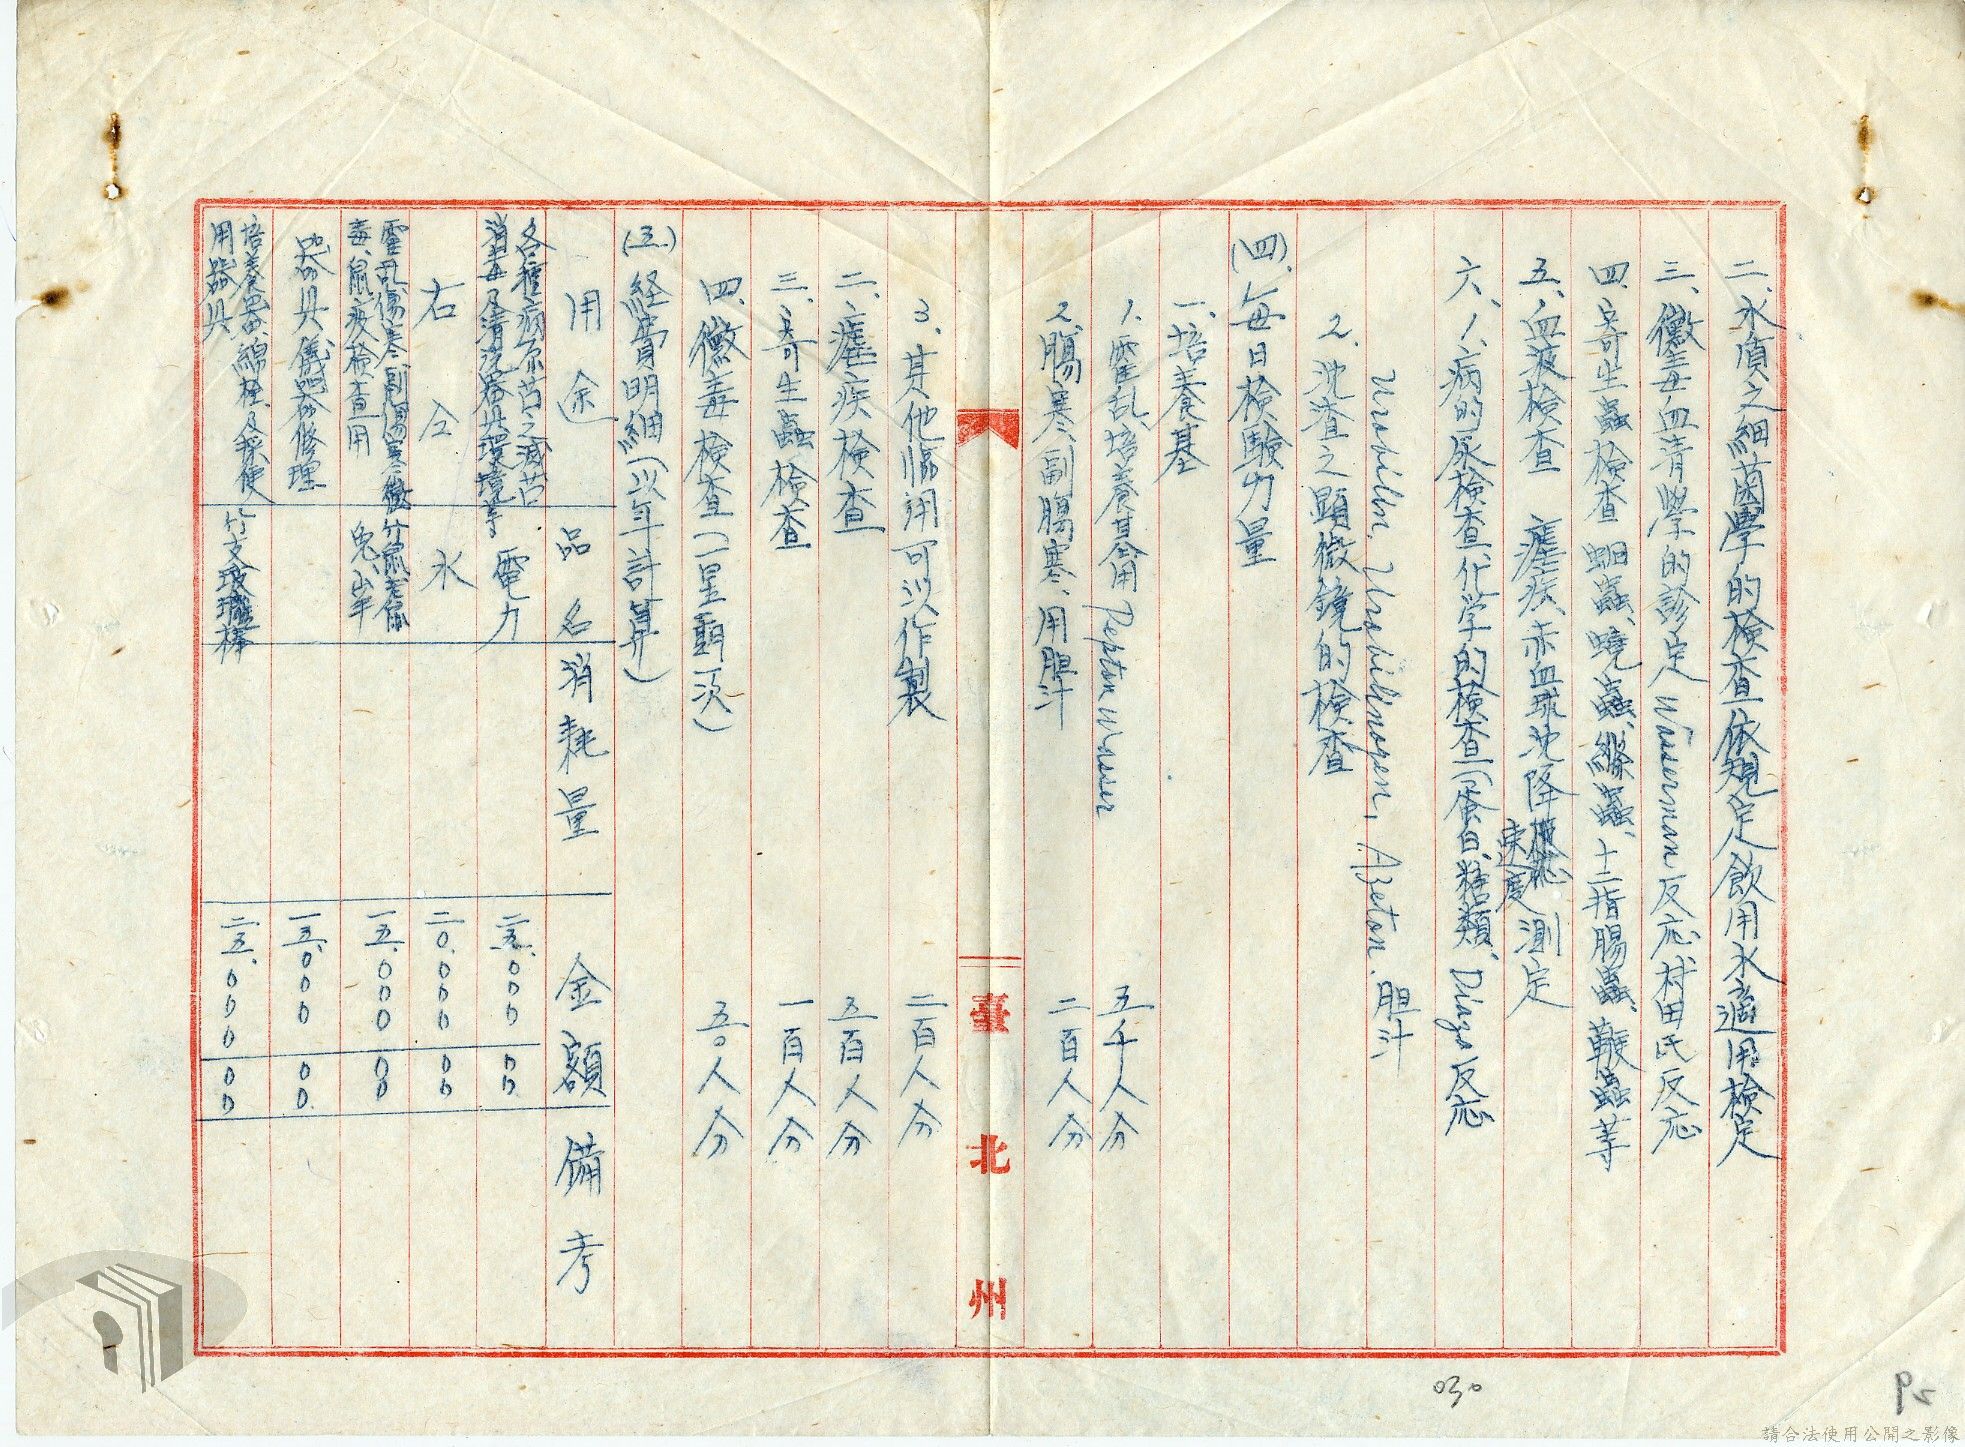 二、水質之細菌學的檢查依規定飲用水適用檢定
三、黴毒血清學的診定 Wasserman反応、村田氏反応
四、寄生蟲檢查 蛔蟲、蟯蟲、絛蟲、十二指腸蟲、鞭蟲等
五、血液檢查 瘧疾、赤血球沈降速度測定
六、1.病的尿檢查、化学的檢查(蛋白、糖類、Diazo反応
Urobilin, Urobilinogen, Azeton.胆汁
2.沈渣之顕微鏡的檢查
(四).每日檢驗力量
一、培養基
1.霍乱培養基用 Pepton wasser 五千人分
2.腸寒、副腸寒、用胆汁 二百人分
臺北州
3.其他臨用可以作製 二百人分
二、瘧疾檢查 五百人分
三、寄生蟲檢查 一百人分
四、黴毒檢查(一星期一次) 五〇人分
(五)経費明細(以年計算)
用途 品名 消耗量 金額 備考
各種病原菌之滅菌 電力 二五.〇〇〇 〇〇
消毒及清潔器具環境等
右仝 水 二〇.〇〇〇 〇〇
霍乱傷寒、副傷寒、黴 竹鼠老鼠 一五.〇〇〇 〇〇
毒、鼠疫檢查用 兔、山羊
器具儀器修理 一五.〇〇〇 〇〇
培養器、綿栓及採便 竹支玻璃棒 二五.〇〇〇 〇〇
用器具
030
P5
請合法使用公開之影像